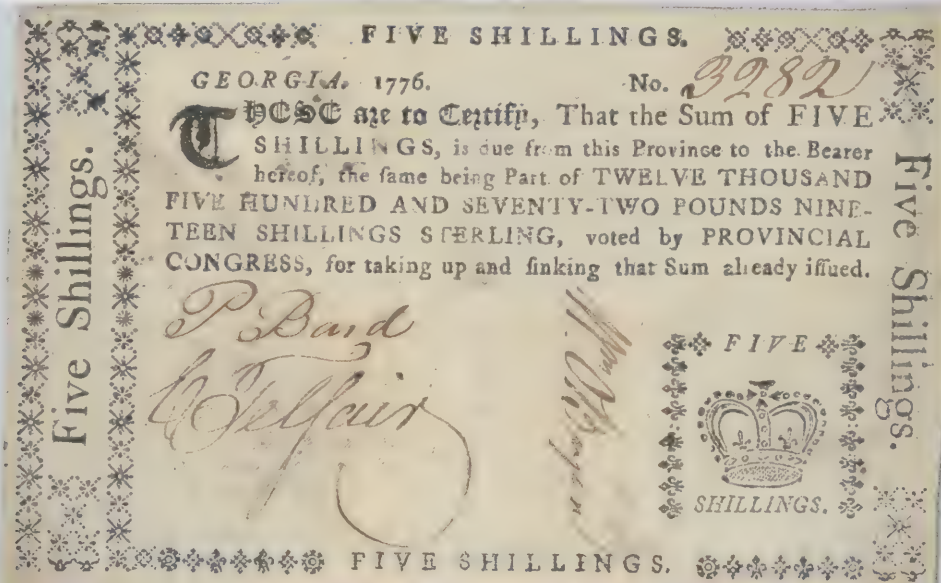 FIVE SHILLINGS.
GEORGIA. 1776. No. 3282
THESE are to Certify, That the Sum of FIVE
SHILLINGS, is due from this Province to the Bearer
hereof, the ſame being Part of TWELVE THOUSAND
FIVE HUNDRED AND SEVENTY-TWO POUNDS NINE-
TEEN SHILLINGS STERLING, voted by PROVINCIAL
CONGRESS, for taking up and ſinking that Sum already iſſued.
P Bard
E Telfair
FIVE
SHILLINGS.
Five Shillings.
Five Shillings.
FIVE SHILLINGS.